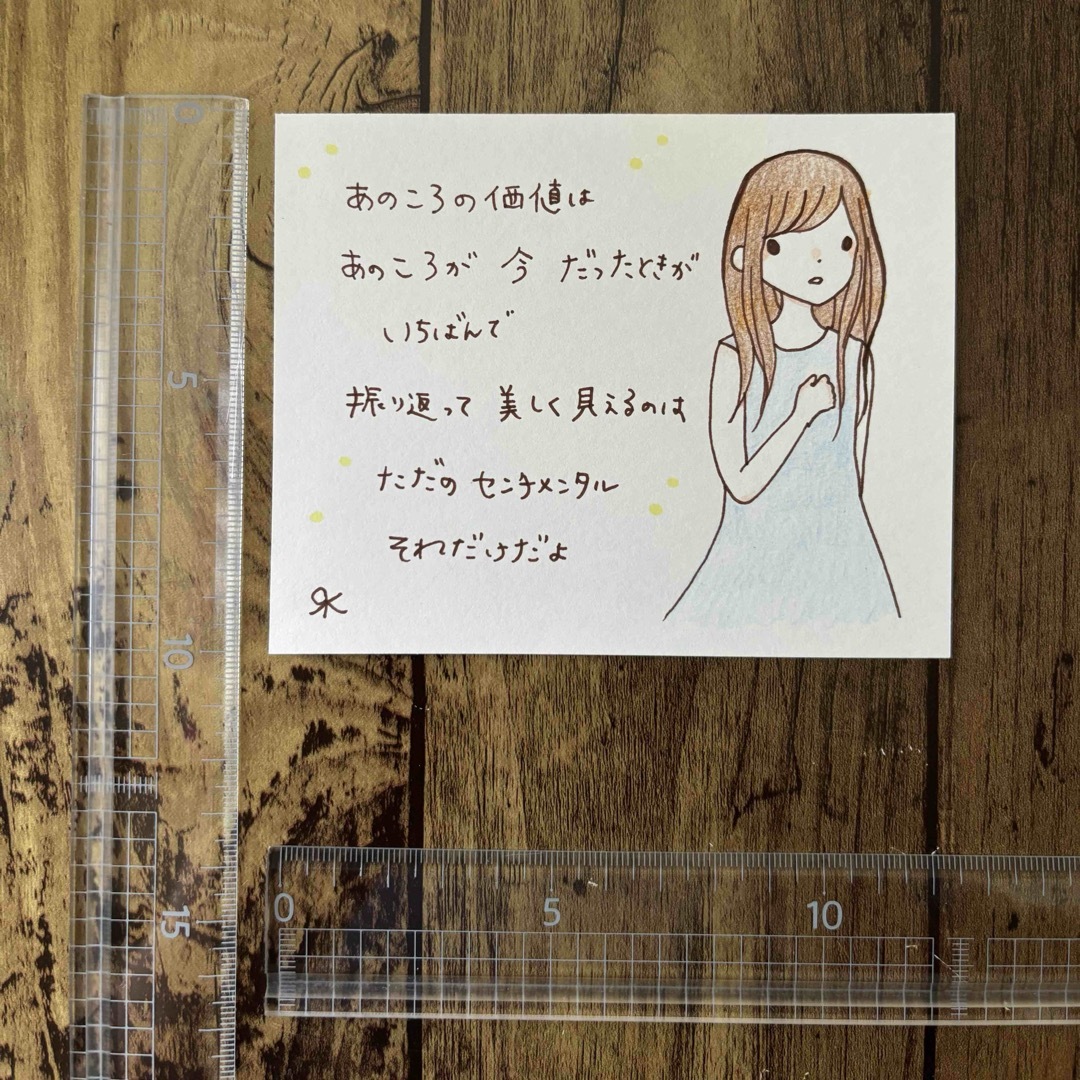 あのころの価値は
あのころが 今 だったときが
いちばんで
振り返って 美しく見えるのは
ただの センチメンタル
それだけだよ
0
5
10
15
0
5
10